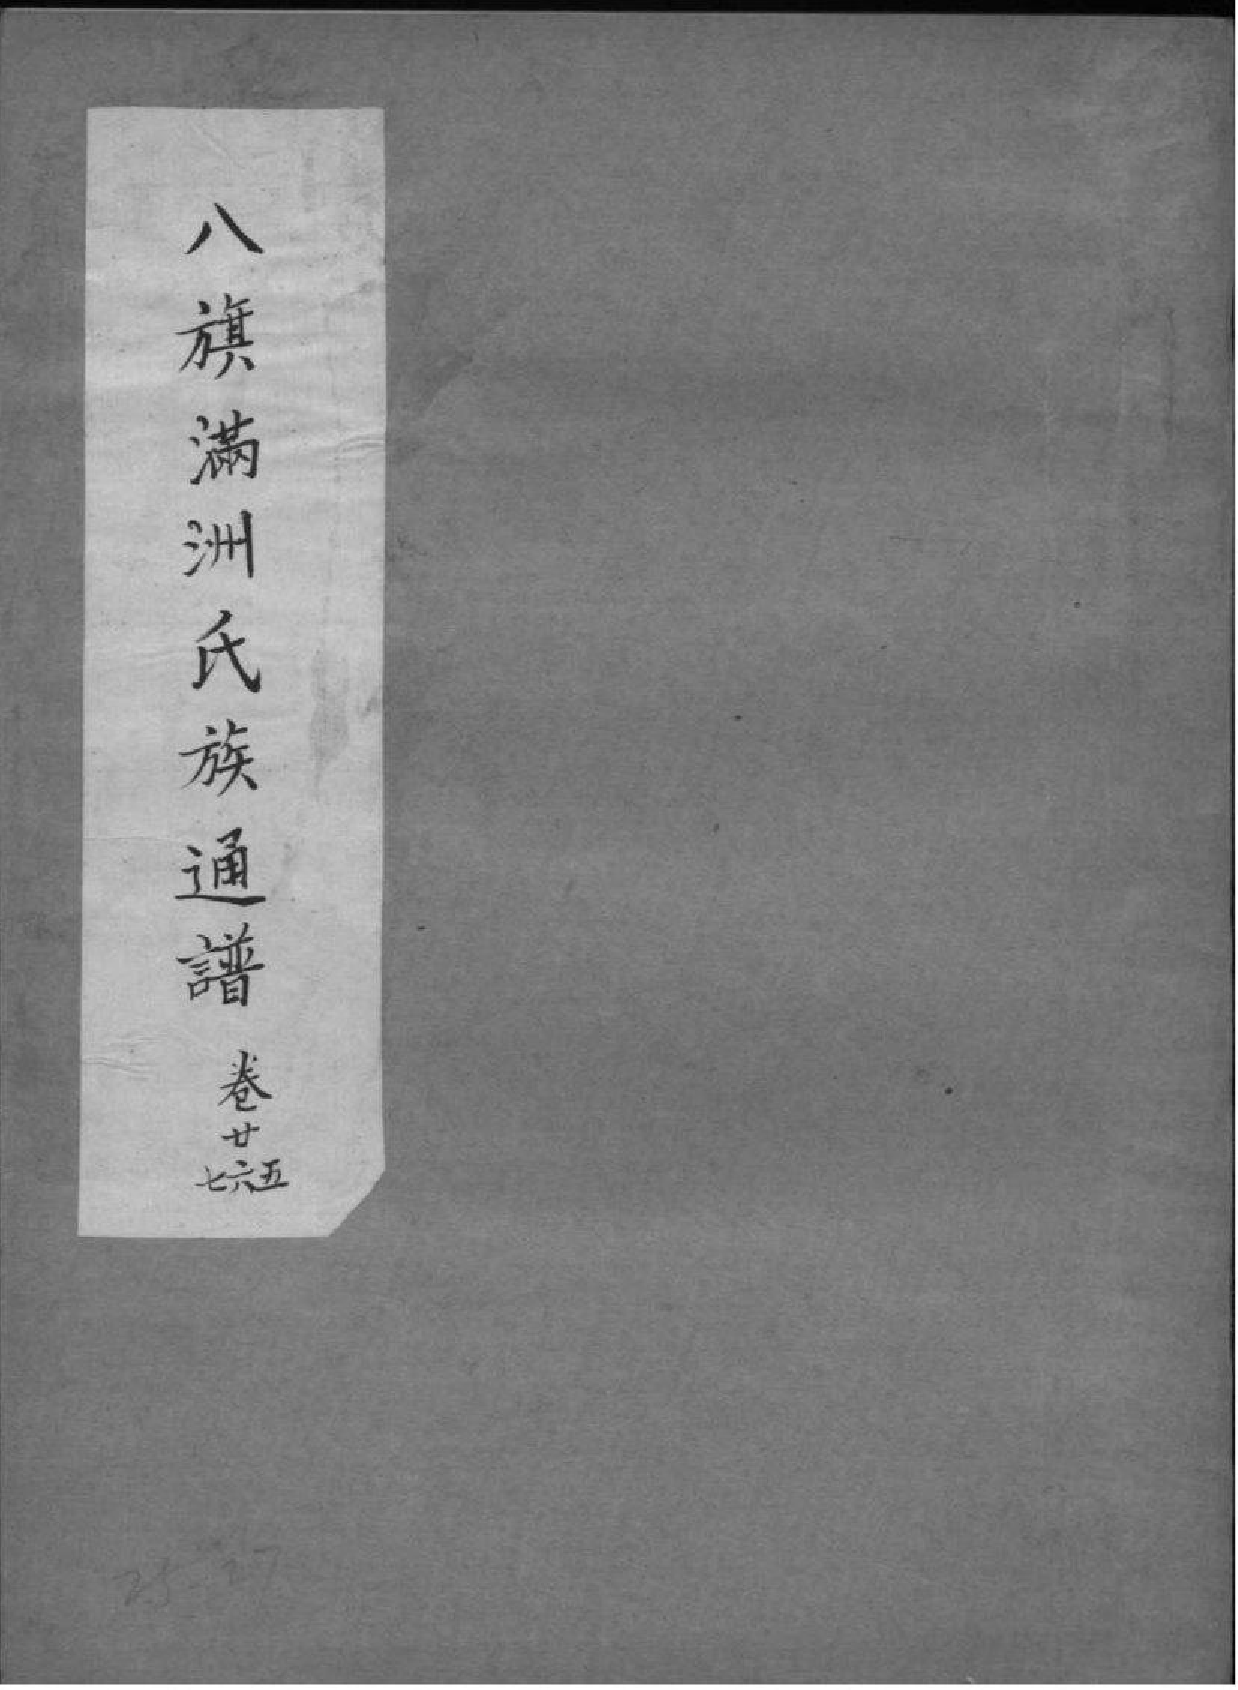 八旗滿洲氏族通譜 卷廿五六七
25-27